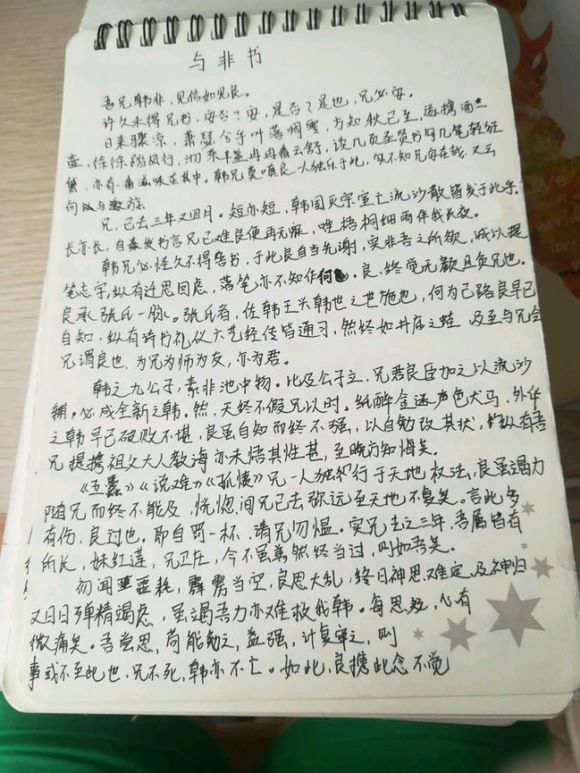 与非书
吾兄韩非，见信如见良。
许久未得兄书，安否？安，是否？是也，兄必安。
日来骤凉，萧瑟 叶落凋零，方知秋已至，遂携酒一
壶，徐徐踏风行，沏茶半盏冉冉看云舒，读几页圣贤书闲几笔轻描
黛，亦有一番滋味在其中。韩兄莫嗔良一人独乐于此，如不知兄安在哉，又云
何以与邀游
兄，已去三年又四月。短亦短，韩国灭宗室亡流沙散皆发于此矣。
长亦长，自 书言兄已难良便再无眠，唯梧桐细雨伴我长夜。
韩兄必怪久不得吾书，于此良自当先谢，实非吾之所欲，诚以提
笔忘字，纵有迁思回虑，落笔亦不知作何 。良，终觉无颜且负兄也。
良承张氏一脉。张氏者，佐韩王兴韩世之世施也，何为己路良早已
自知，纵有诗书礼仪六艺经传皆通习，然终如井底之蛙，及至与兄会
兄谓良也，为兄为师为友，亦为君。
韩之九公子，素非池中物。比及公子立，兄君良臣加之以流沙
辅，必成全新之韩。然，天终不假兄以时。纸醉金迷声色犬马，外华
之韩早已破败不堪，良虽自知而终不强，以自勉改其状，纵有吾
兄提携祖父大人教诲亦未悟其性甚，至晚方知悔矣。
《五蠹》《说难》《孤愤》兄一人独行于天地权法，良虽竭力
随兄而终不能及，恍惚间兄已去弥远至天地不复矣。言此多
有伤，良过也。即自罚一杯，请兄勿愠。实兄去之三年，吾属皆有
所长，妹红莲，兄卫庄，今不虽 然终当过，则如吾矣。
初闻 噩耗，霹雳当空，良思大乱，终日神思难定，及神归
又日日殚精竭虑，虽竭吾力亦难救我韩。每思 ，心有
微痛矣。吾尝思，苟能勉之，益强，计复审之，则
事或不至此也，兄不死，韩亦不亡。如此，良携此念不觉